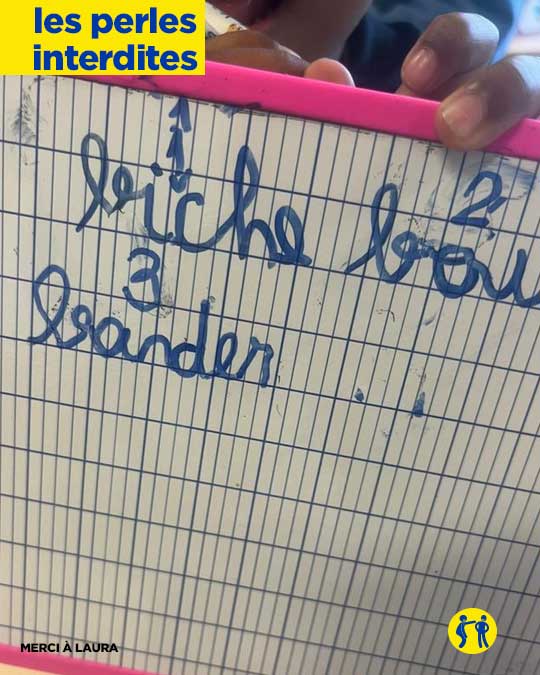 les perles
interdites
1
2
biche bou
3
bander
MERCI À LAURA